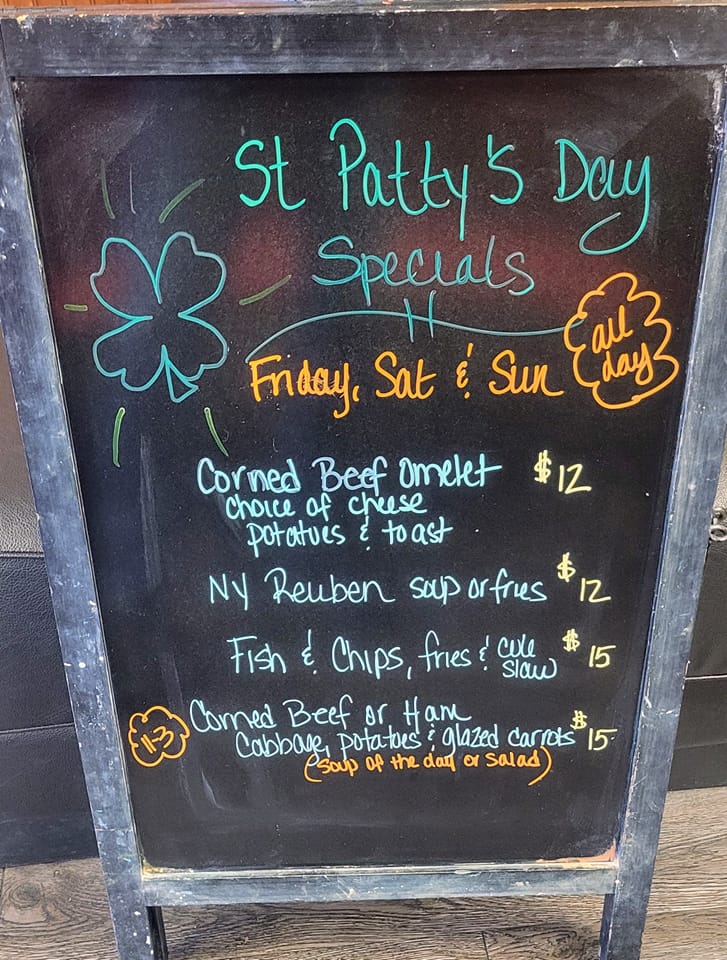 St Patty's Day
Specials
Friday, Sat & Sun
all
day
Corned Beef Omelet $12
choice of cheese
potatoes & toast
NY Reuben soup or fries $12
Fish & Chips, fries & cole slaw $15
11-3
Corned Beef or Ham
Cabbage, potatoes & glazed carrots $15
(soup of the day or salad)